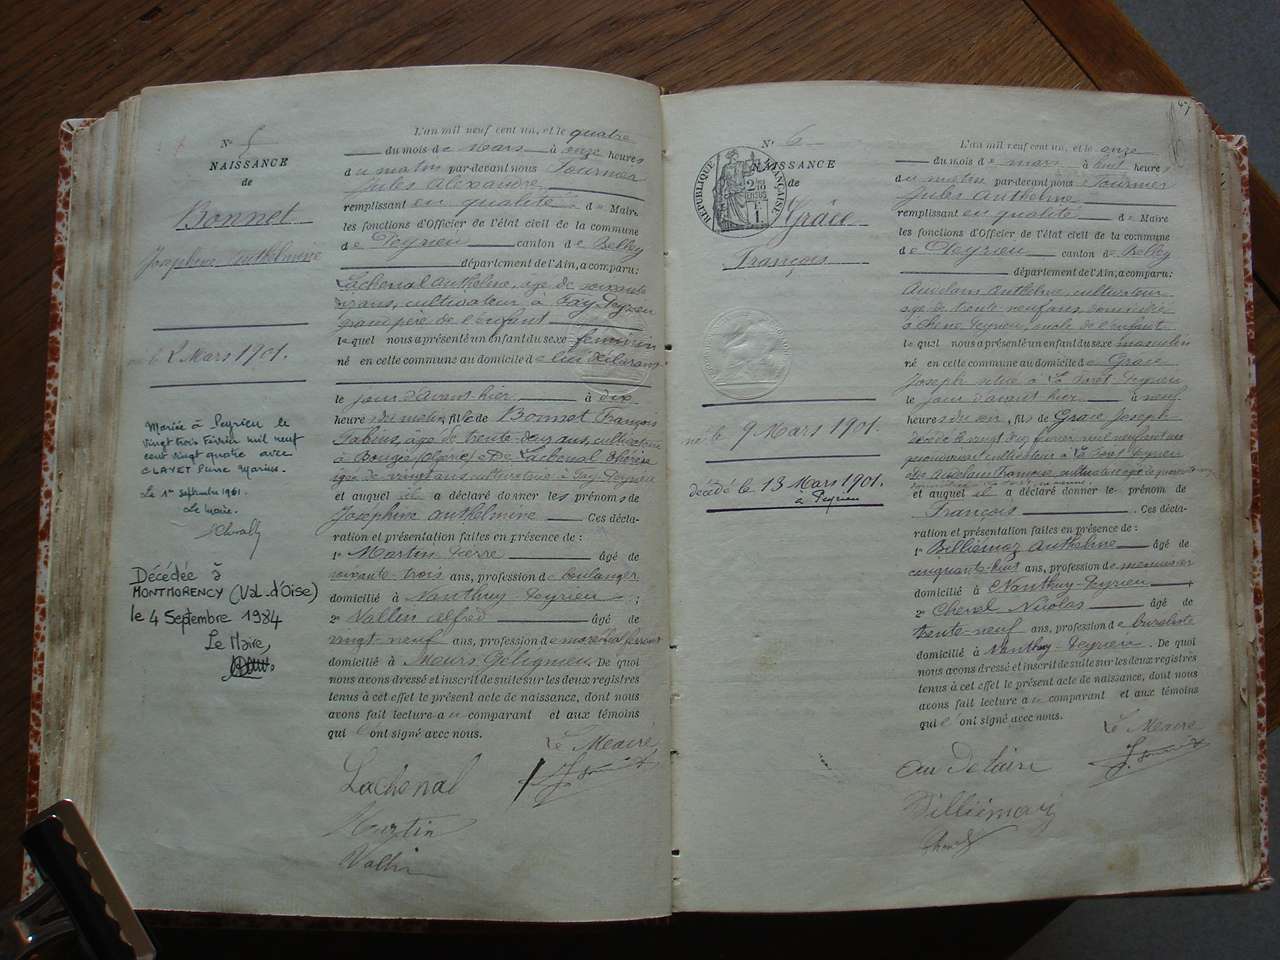 N° 5
NAISSANCE
de
Bonnet
Josephine Anthelmine
né le 2 Mars 1901.
Mariée à Peyrieu le
vingt trois Février mil neuf
cent vingt quatre avec
CLAYET Pierre Marius.
Le 1er Septembre 1961.
Le Maire.
Décédée à
MONTMORENCY (Val-d'Oise)
le 4 Septembre 1984
Le Maire,
L'an mil neuf cent un, et le quatre
du mois de Mars à onze heures
du matin par-devant nous Fournier
Jules Alexandre
remplissant en qualité de Maire
les fonctions d'Officier de l'état civil de la commune
de Peyrieu canton de Belley
département de l'Ain, a comparu:
Lachenal Anthelme, âgé de soixante
ans, cultivateur à Fay Peyrieu
grand père de l'enfant
lequel nous a présenté un enfant du sexe féminin
né en cette commune au domicile de
le jour d'avant hier à dix
heures du matin, fille de Bonnet François
Fabius, âgé de trente deux ans, cultivateur
à De Lachenal Thérèse
âgée de vingt ans cultivatrice à Fay Peyrieu
et auquel il a déclaré donner les prénoms de
Josephine Anthelmine Ces décla-
ration et présentation faites en présence de:
1° Martin Pierre âgé de
soixante-trois ans, profession de boulanger
domicilié à Nanthuy-Peyrieu ;
2° Vallin Alfred âgé de
vingt neuf ans, profession de maréchal ferrant
domicilié à Meurs Gélignieu. De quoi
nous avons dressé et inscrit de suite sur les deux registres
tenus à cet effet le présent acte de naissance, dont nous
avons fait lecture au comparant et aux témoins
qui l'ont signé avec nous.
Le Maire,
Lachenal
Martin
Vallin
47
N° 6
NAISSANCE
de
RÉPUBLIQUE FRANÇAISE
Grâce
François
né le 9 Mars 1901.
décédé le 13 Mars 1901.
à Peyrieu
L'an mil neuf cent un, et le onze
du mois de mars à huit heures
du matin par-devant nous Fournier
Jules Anthelme
remplissant en qualité de Maire
les fonctions d'Officier de l'état civil de la commune
de Peyrieu canton de Belley
département de l'Ain, a comparu:
Anthelme, cultivateur
âgé de trente neuf ans, domicilié
à Chêne Peyrieu, oncle de l'enfant
lequel nous a présenté un enfant du sexe masculin
né en cette commune au domicile de Grâce
Joseph situé à La Forêt-Peyrieu
le jour d'avant hier à neuf
heures du soir, fils de Grâce Joseph
et auquel il a déclaré donner le prénom de
François. Ces décla-
ration et présentation faites en présence de:
1° Billiémaz Anthelme âgé de
cinquante-huit ans, profession de menuisier
domicilié à Nanthuy-Peyrieu
2° Nicolas âgé de
trente-neuf ans, profession de buraliste
domicilié à Nanthuy-Peyrieu. De quoi
nous avons dressé et inscrit de suite sur les deux registrès
tenus à cet effet le présent acte de naissance, dont nous
avons fait lecture au comparant et aux témoins
qui l'ont signé avec nous.
Le Maire
Billiémaz